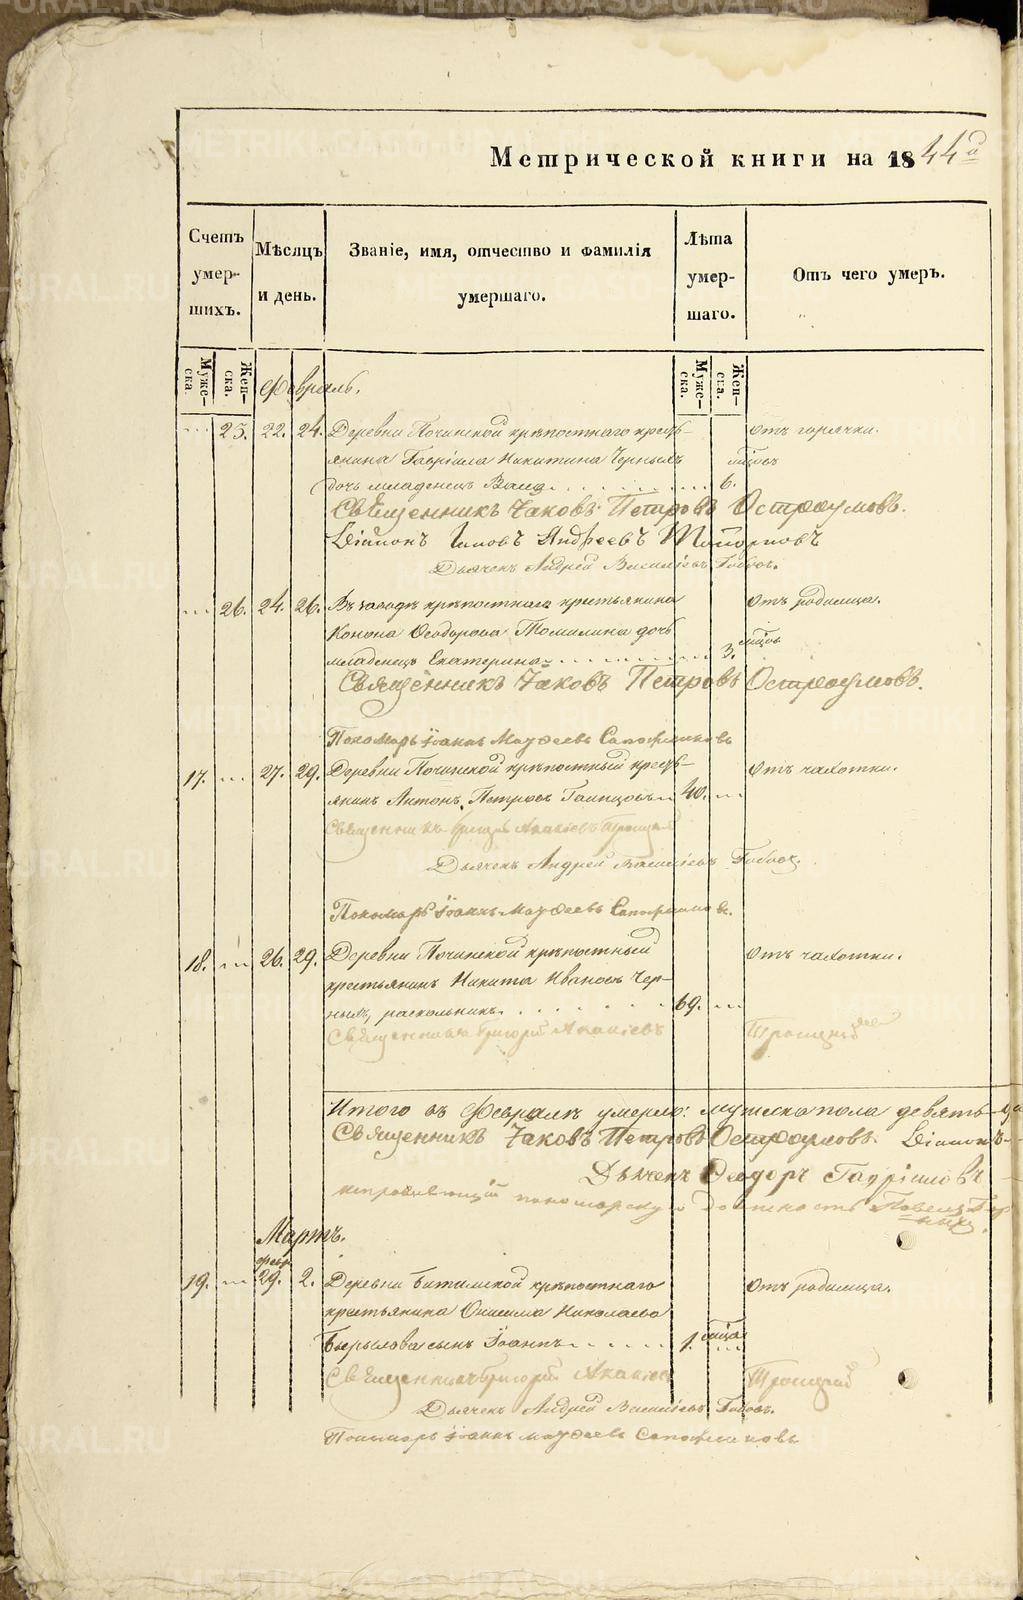 Метрической книги на 1844й
Счетъ умершихъ.
Мѣсяцъ и день.
Званіе, имя, отчество и фамилія умершаго.
Лѣта умершаго.
Отъ чего умеръ.
Мужеска.
Женска.
Мужеска.
Женска.
Февраль.
... 25. 22. 24. Деревни Починской крѣпостнаго кресть- отъ горячки.
янина Гавріила Никитина Черныхъ
дочь младенецъ 6.
Священникъ Іаковъ Петровъ Остроумовъ.
Діаконъ Андреевъ
Дьячекъ Андрей Василіевъ
... 26. 24. 26. Въ заводѣ крѣпостнаго крестьянина отъ родимца.
Конона Ѳеодорова Томилина дочь
младенецъ Екатерина 3.
Священникъ Іаковъ Петровъ Остроумовъ.
Пономарь Іоаннъ Матѳеевъ Сапожниковъ
17. ... 27. 29. Деревни Починской крѣпостный кресть- отъ чахотки.
янинъ Антонъ Петровъ 40. ...
Священникъ Григорій Акакіевъ Троицкій
Дьячекъ Андрей Василіевъ
Пономарь Іоаннъ Матѳеевъ Сапожниковъ.
18. ... 26. 29. Деревни Починской крѣпостный отъ чахотки.
крестьянинъ Никита Ивановъ Чер-
ныхъ, раскольникъ. 69. ...
Священникъ Григорій Акакіевъ Троицкій
Итого въ Февралѣ умерло: мужска пола девять
Священникъ Іаковъ Петровъ Остроумовъ. Діаконъ
Дьячекъ Ѳеодоръ Гавріиловъ
исправляющій пономарскую должность Павелъ
Мартъ.
февр.
19. ... 29. 2. Деревни Битимской крѣпостнаго отъ родимца.
крестьянина Онисима Николаева
сынъ Іоаннъ 1.
Священникъ Григорій Акакіевъ Троицкій
Дьячекъ Андрей Василіевъ
Пономарь Іоаннъ Матѳеевъ Сапожниковъ
METRIKI.GASO-URAL.RU